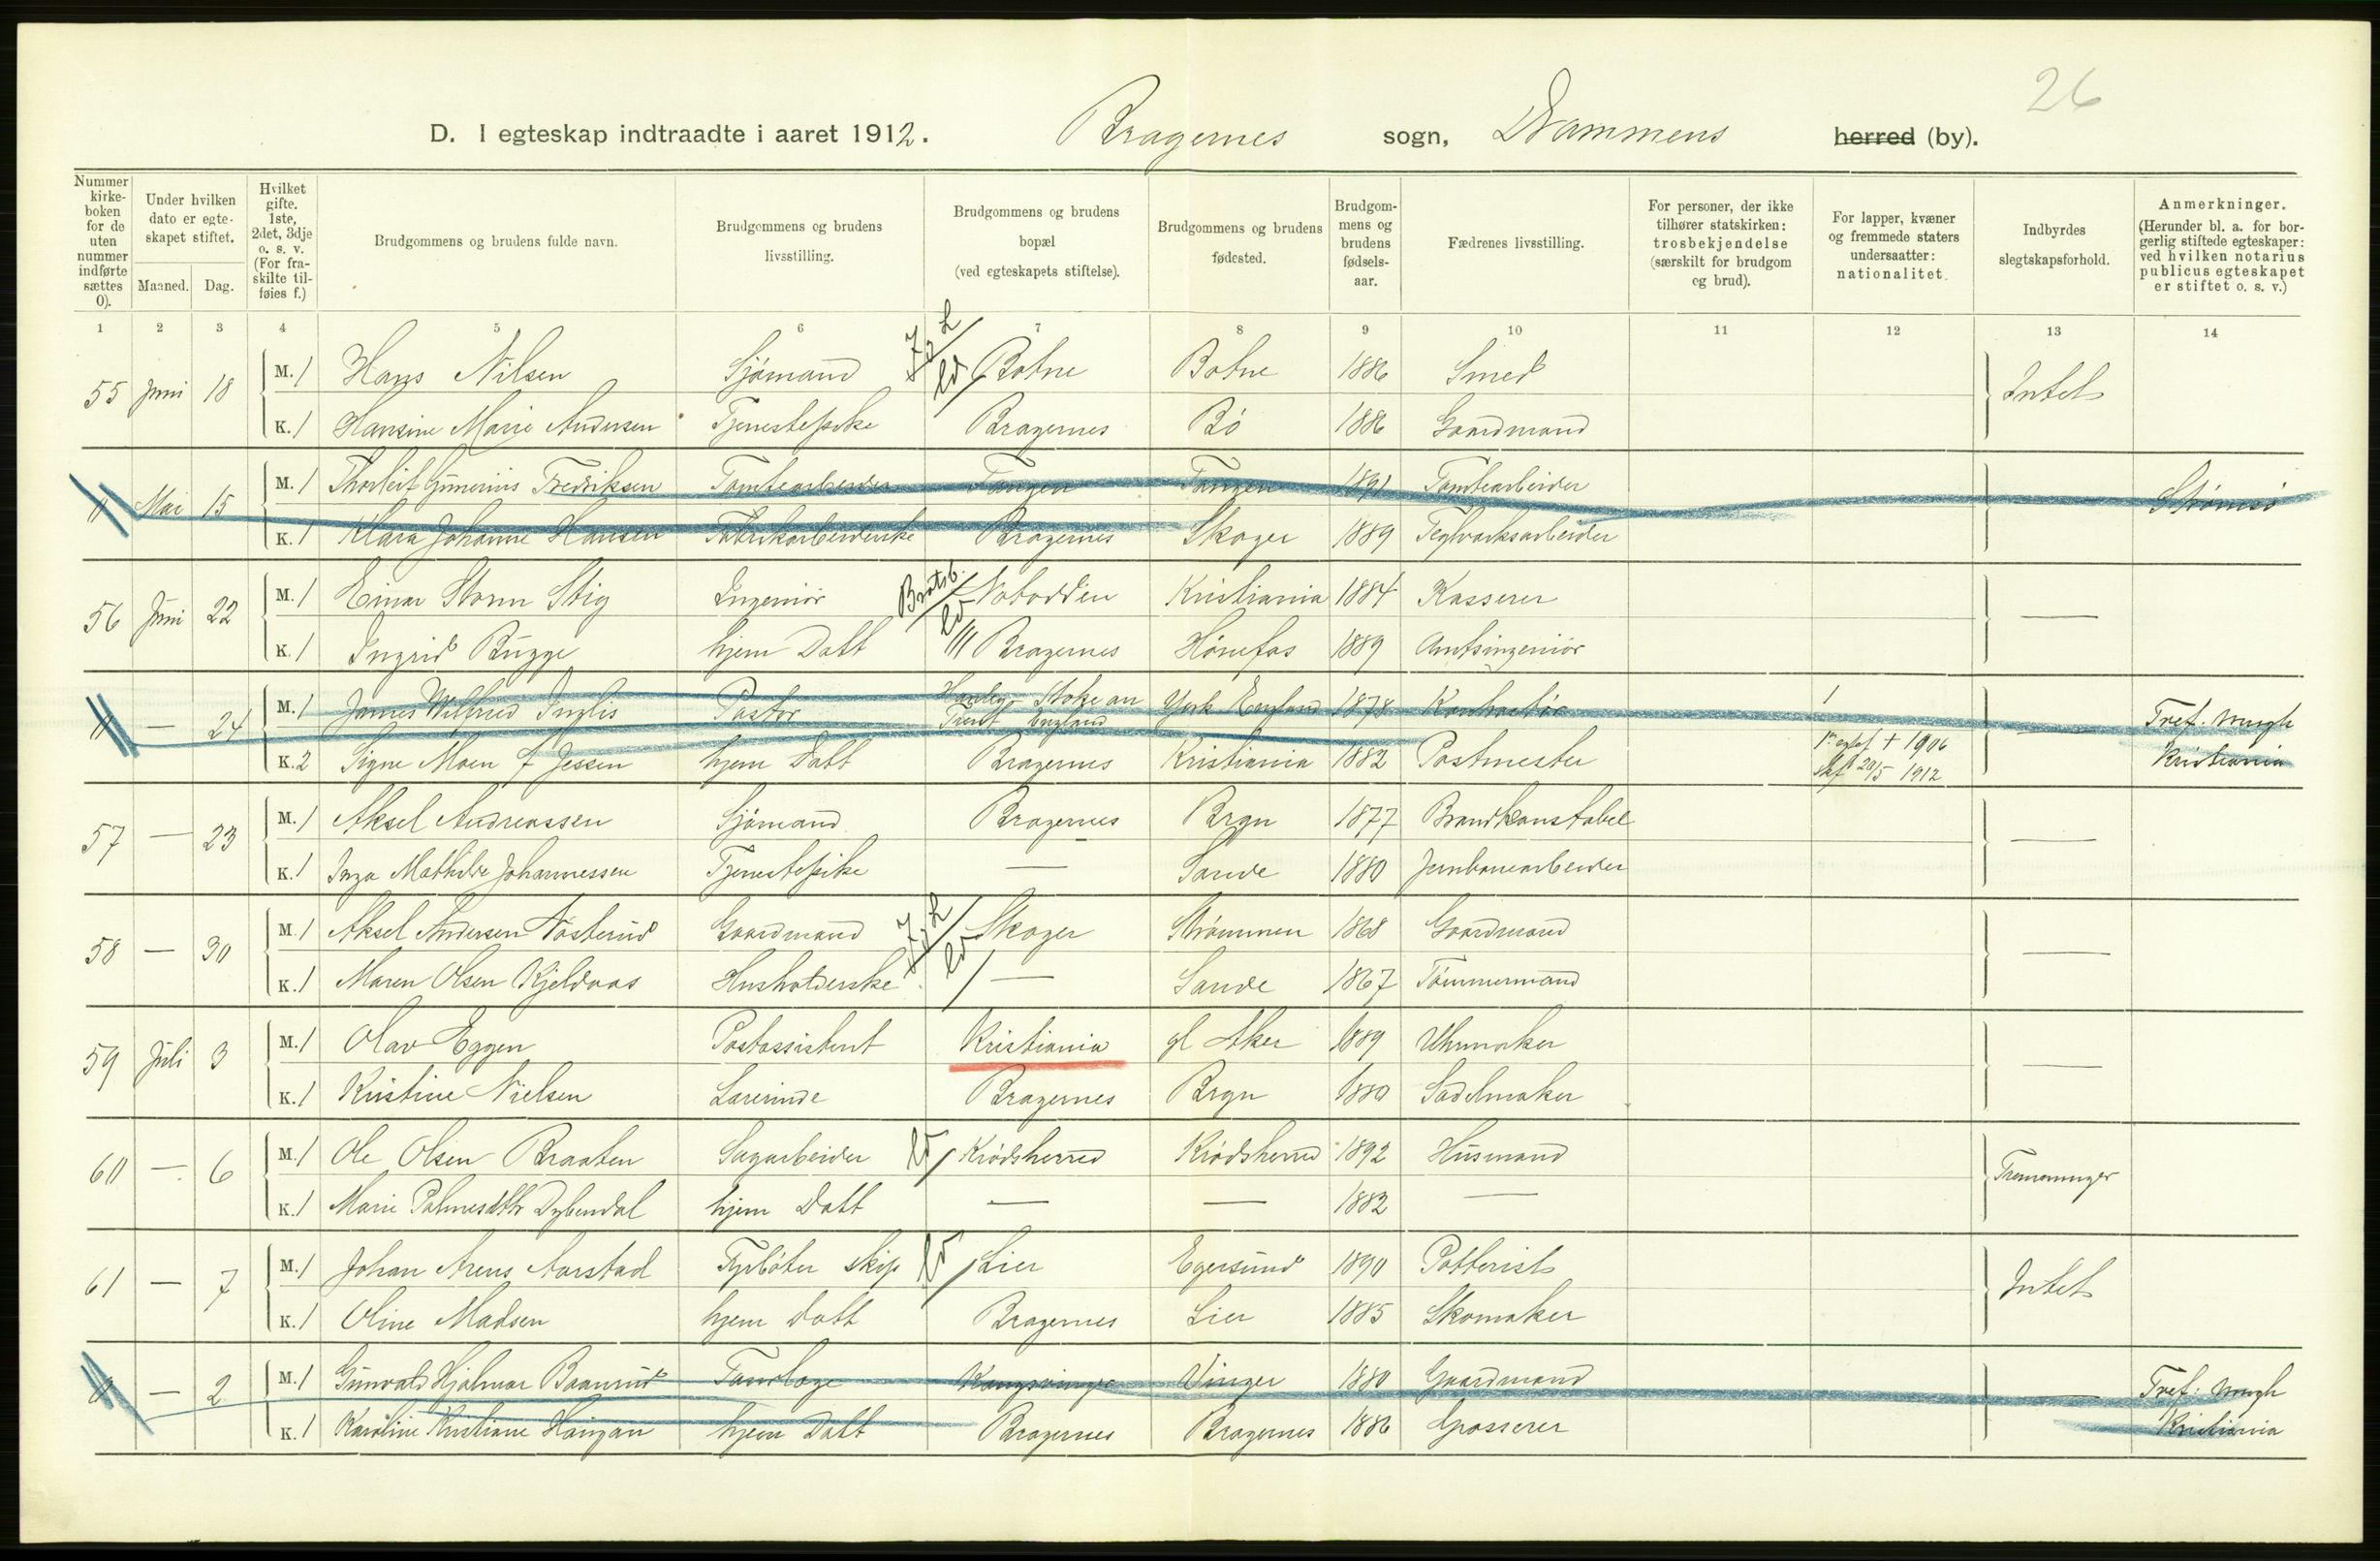 26
D. I egteskap indtraadte i aaret 1912. Bragernes sogn, Drammens herred (by).
Nummer kirke-boken for de uten nummer indførte sættes 0).
Under hvilken dato er egte-skapet stiftet.
Maaned. Dag.
Hvilket gifte. 1ste, 2det, 3dje o. s. v. (For fra-skilte til-føies f.)
Brudgommens og brudens fulde navn.
Brudgommens og brudens livsstilling.
Brudgommens og brudens bopæl (ved egteskapets stiftelse).
Brudgommens og brudens fødested.
Brudgom-mens og brudens fødsels-aar.
Fædrenes livsstilling.
For personer, der ikke tilhører statskirken: trosbekjendelse (særskilt for brudgom og brud).
For lapper, kvæner og fremmede staters undersaatter: nationalitet.
Indbyrdes slegtskapsforhold.
Anmerkninger. (Herunder bl. a. for bor-gerlig stiftede egteskaper: ved hvilken notarius publicus egteskapet er stiftet o. s. v.)
1 2 3 4 5 6 7 8 9 10 11 12 13 14
55 Juni 18 M. 1 Hans Nilsen Sjømand Botne Botne 1886 Smed Intet
K. 1 Hansine Marie Andersen Tjenestepike Bragernes Bö 1886 Gaardmand
0 Mai 15 M. 1 Thorleif Gunerius Fredriksen Tomtearbeider Tangen Tangen 1891 Tomtearbeider — Strömsö
K. 1 Klara Johanne Hansen Fabrikarbeiderske Bragernes Skoger 1889 Teglverksarbeider
56 Juni 22 M. 1 Einar Storm Stig Ingeniör Bratsb. Notodden Kristiania 1884 Kasserer —
K. 1 Ingrid Bugge hjem Datt Bragernes Hönefos 1889 Amtsingeniör
0 — 24 M. 1 James Wilfried Inglis Pastor Hanley Stoke on Trent England York England 1878 — Tref. mgh
K. 2 Signe Moen f Jessen hjem Datt Bragernes Kristiania 1882 Postmester + 1906 20/5 1912 Kristiania
57 — 23 M. 1 Aksel Andreassen Sjömand Bragernes Brgn 1877 Brandkonstabel —
K. 1 Inga Mathilde Johannessen Tjenestepike — Sande 1880 Jernbanearbeider
58 — 30 M. 1 Aksel Andersen Nösterud Gaardmand Skoger Strömmen 1868 Gaardmand —
K. 1 Maren Olsen Kjeldaas Husholderske — Sande 1867 Tömmermand
59 Juli 3 M. 1 Olav Eggen Postassistent Kristiania gl Aker 1889 Uhrmaker —
K. 1 Kristine Nielsen Lærerinde Bragernes Brgn 1880 Sadelmaker
60 — 6 M. 1 Ole Olsen Braaten Sagarbeider Krödsherred Krödsherred 1892 Husmand Tremenninger
K. 1 Marie Palmesdttr Dybendal hjem Datt — — 1882 —
61 — 7 M. 1 Johan Arens Aarstad Fyrböter skip Lier Egersund 1890 Potterist Intet
K. 1 Oline Madsen hjem Datt Bragernes Lier 1885 Skomaker
0 — 2 M. 1 Gunvald Hjalmar Baanrud Tandlæge Kongsvinger Vinger 1880 Gaardmand — Tref. mgh
K. 1 Karoline Kristiane Haugan hjem Datt Bragernes Bragernes 1886 Grosserer Kristiania